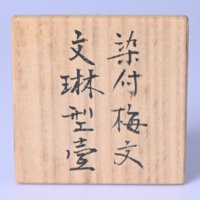 染付梅文
文琳型壷